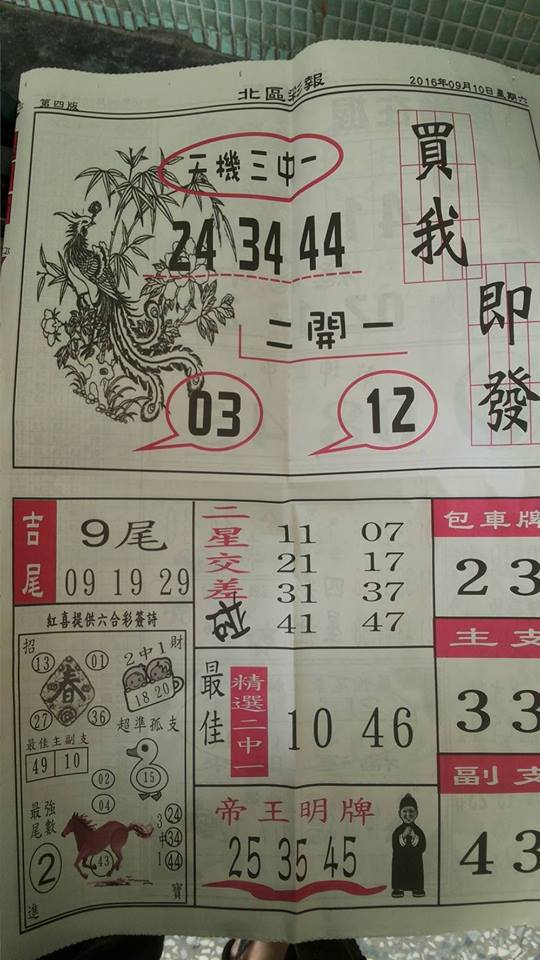 第四版
北區彩報
2016年09月10日星期六
天機三中一
24 34 44
二開一
03 12
買我
即發
吉尾
9尾
09 19 29
二星交差
11 07
21 17
31 37
41 47
包車牌
23
主支
33
副支
43
最佳
精選二中一
10 46
帝王明牌
25 35 45
紅喜提供六合彩簽詩
招 財
13 01
春
27 36
2中1
18 20
最佳主副支
49 10
超準孤支
15
02
04
最強尾數
2
43
3中1
24
34
44
進 寶